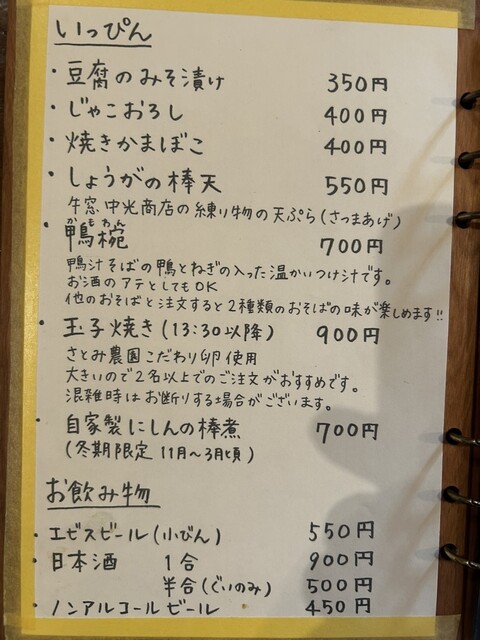 いっぴん
・豆腐のみそ漬け 350円
・じゃこおろし 400円
・焼きかまぼこ 400円
・しょうがの棒天 550円
牛窓中光商店の練り物の天ぷら(さつまあげ)
・鴨椀 700円
かもわん
鴨汁そばの鴨とねぎの入った温かいつけ汁です。
お酒のアテとしてもOK
他のおそばと注文すると2種類のおそばの味が楽しめます!!
・玉子焼き(13:30以降) 900円
さとみ農園こだわり卵使用
大きいので2名以上でのご注文がおすすめです。
混雑時はお断りする場合がございます。
・自家製にしんの棒煮 700円
(冬期限定 11月〜3月頃)
お飲み物
・エビスビール(小びん) 550円
・日本酒 1合 900円
半合(ぐいのみ) 500円
・ノンアルコールビール 450円